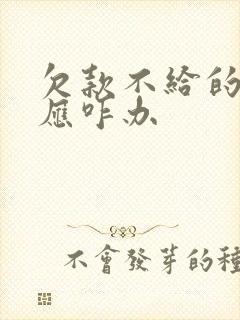 欠款不给的
应咋办
不會發芽的種